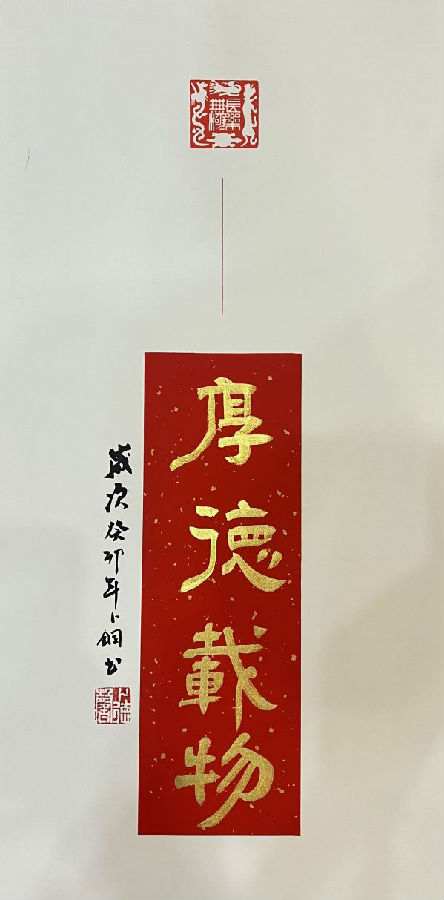 長樂
無極
厚德載物
歲次癸卯年卜鋼书